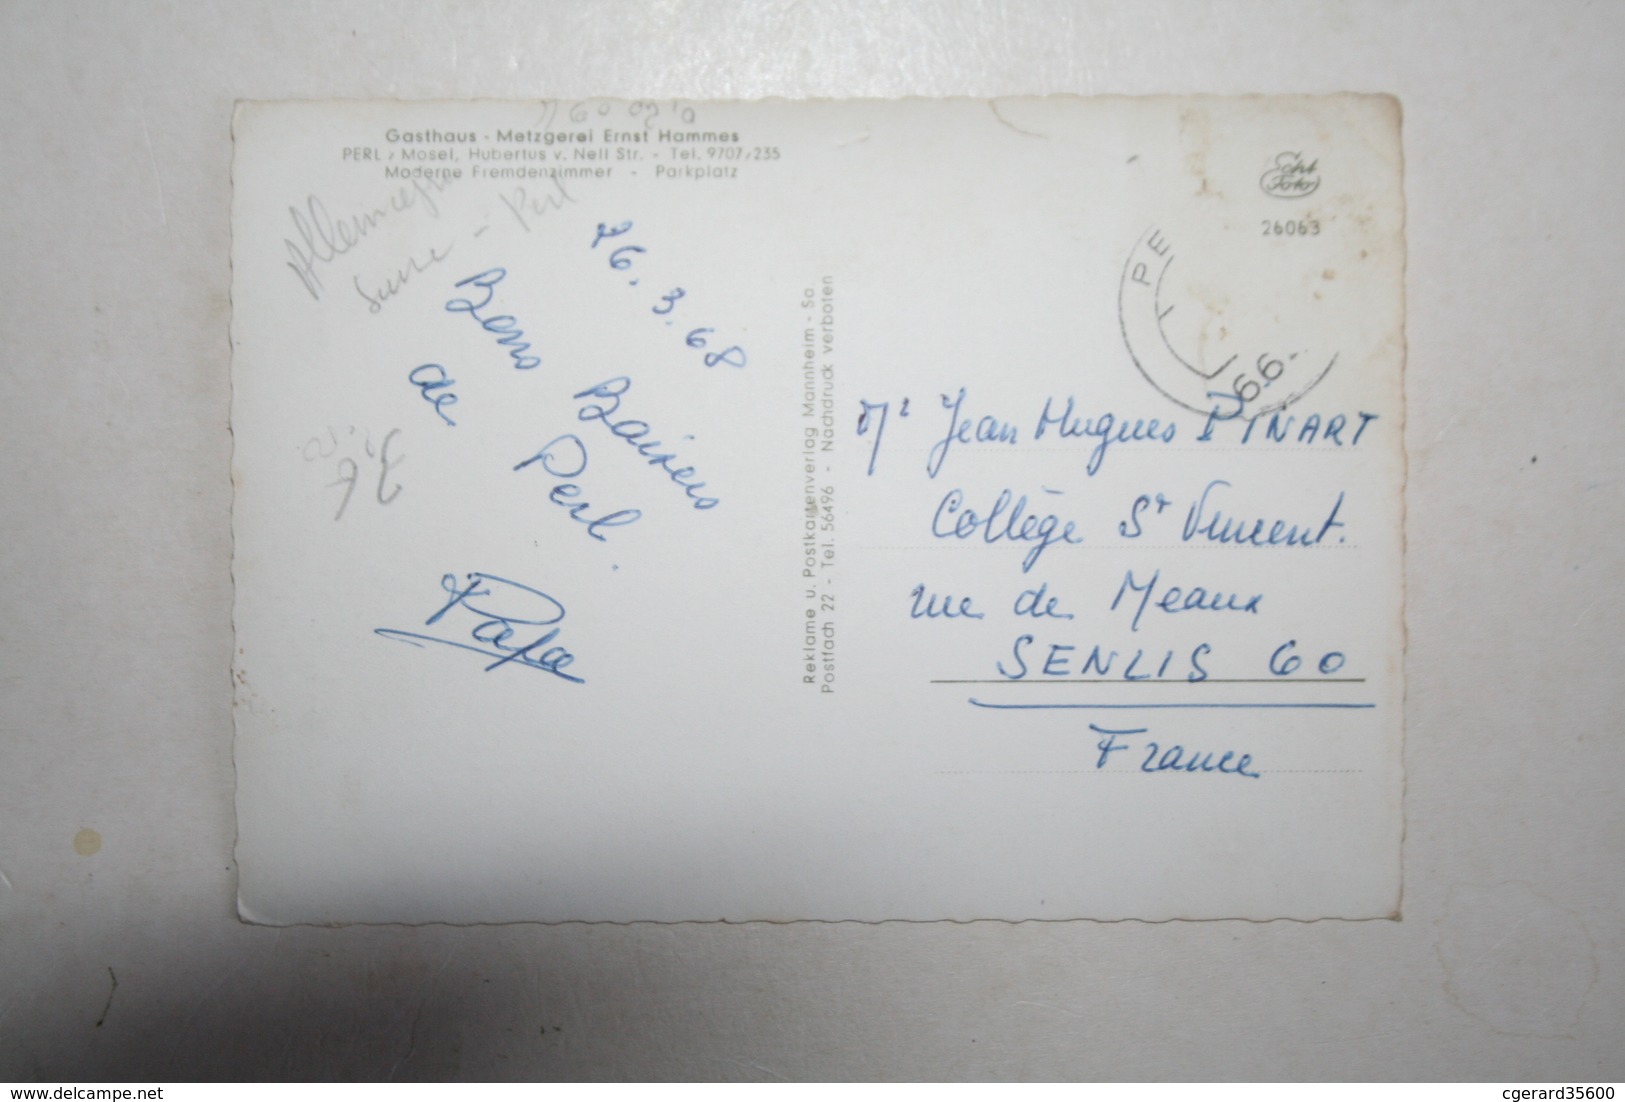 Gasthaus - Metzgerei Ernst Hammes
PERL / Mosel, Hubertus v. Nell Str. - Tel. 9707/235
Moderne Fremdenzimmer - Parkplatz
Allemagne
Perl
26.3.68
Bons Baisers
de Perl.
Papa
3€
Reklame u. Postkartenverlag Mannheim - Sa.
Postfach 22 - Tel. 56496 - Nachdruck verboten
Echt
Foto
26063
PE
66-
Mr Jean Hugues PINART
Collège St Vincent.
rue de Meaux
SENLIS 60
France
delcampe.net
cgerard35600